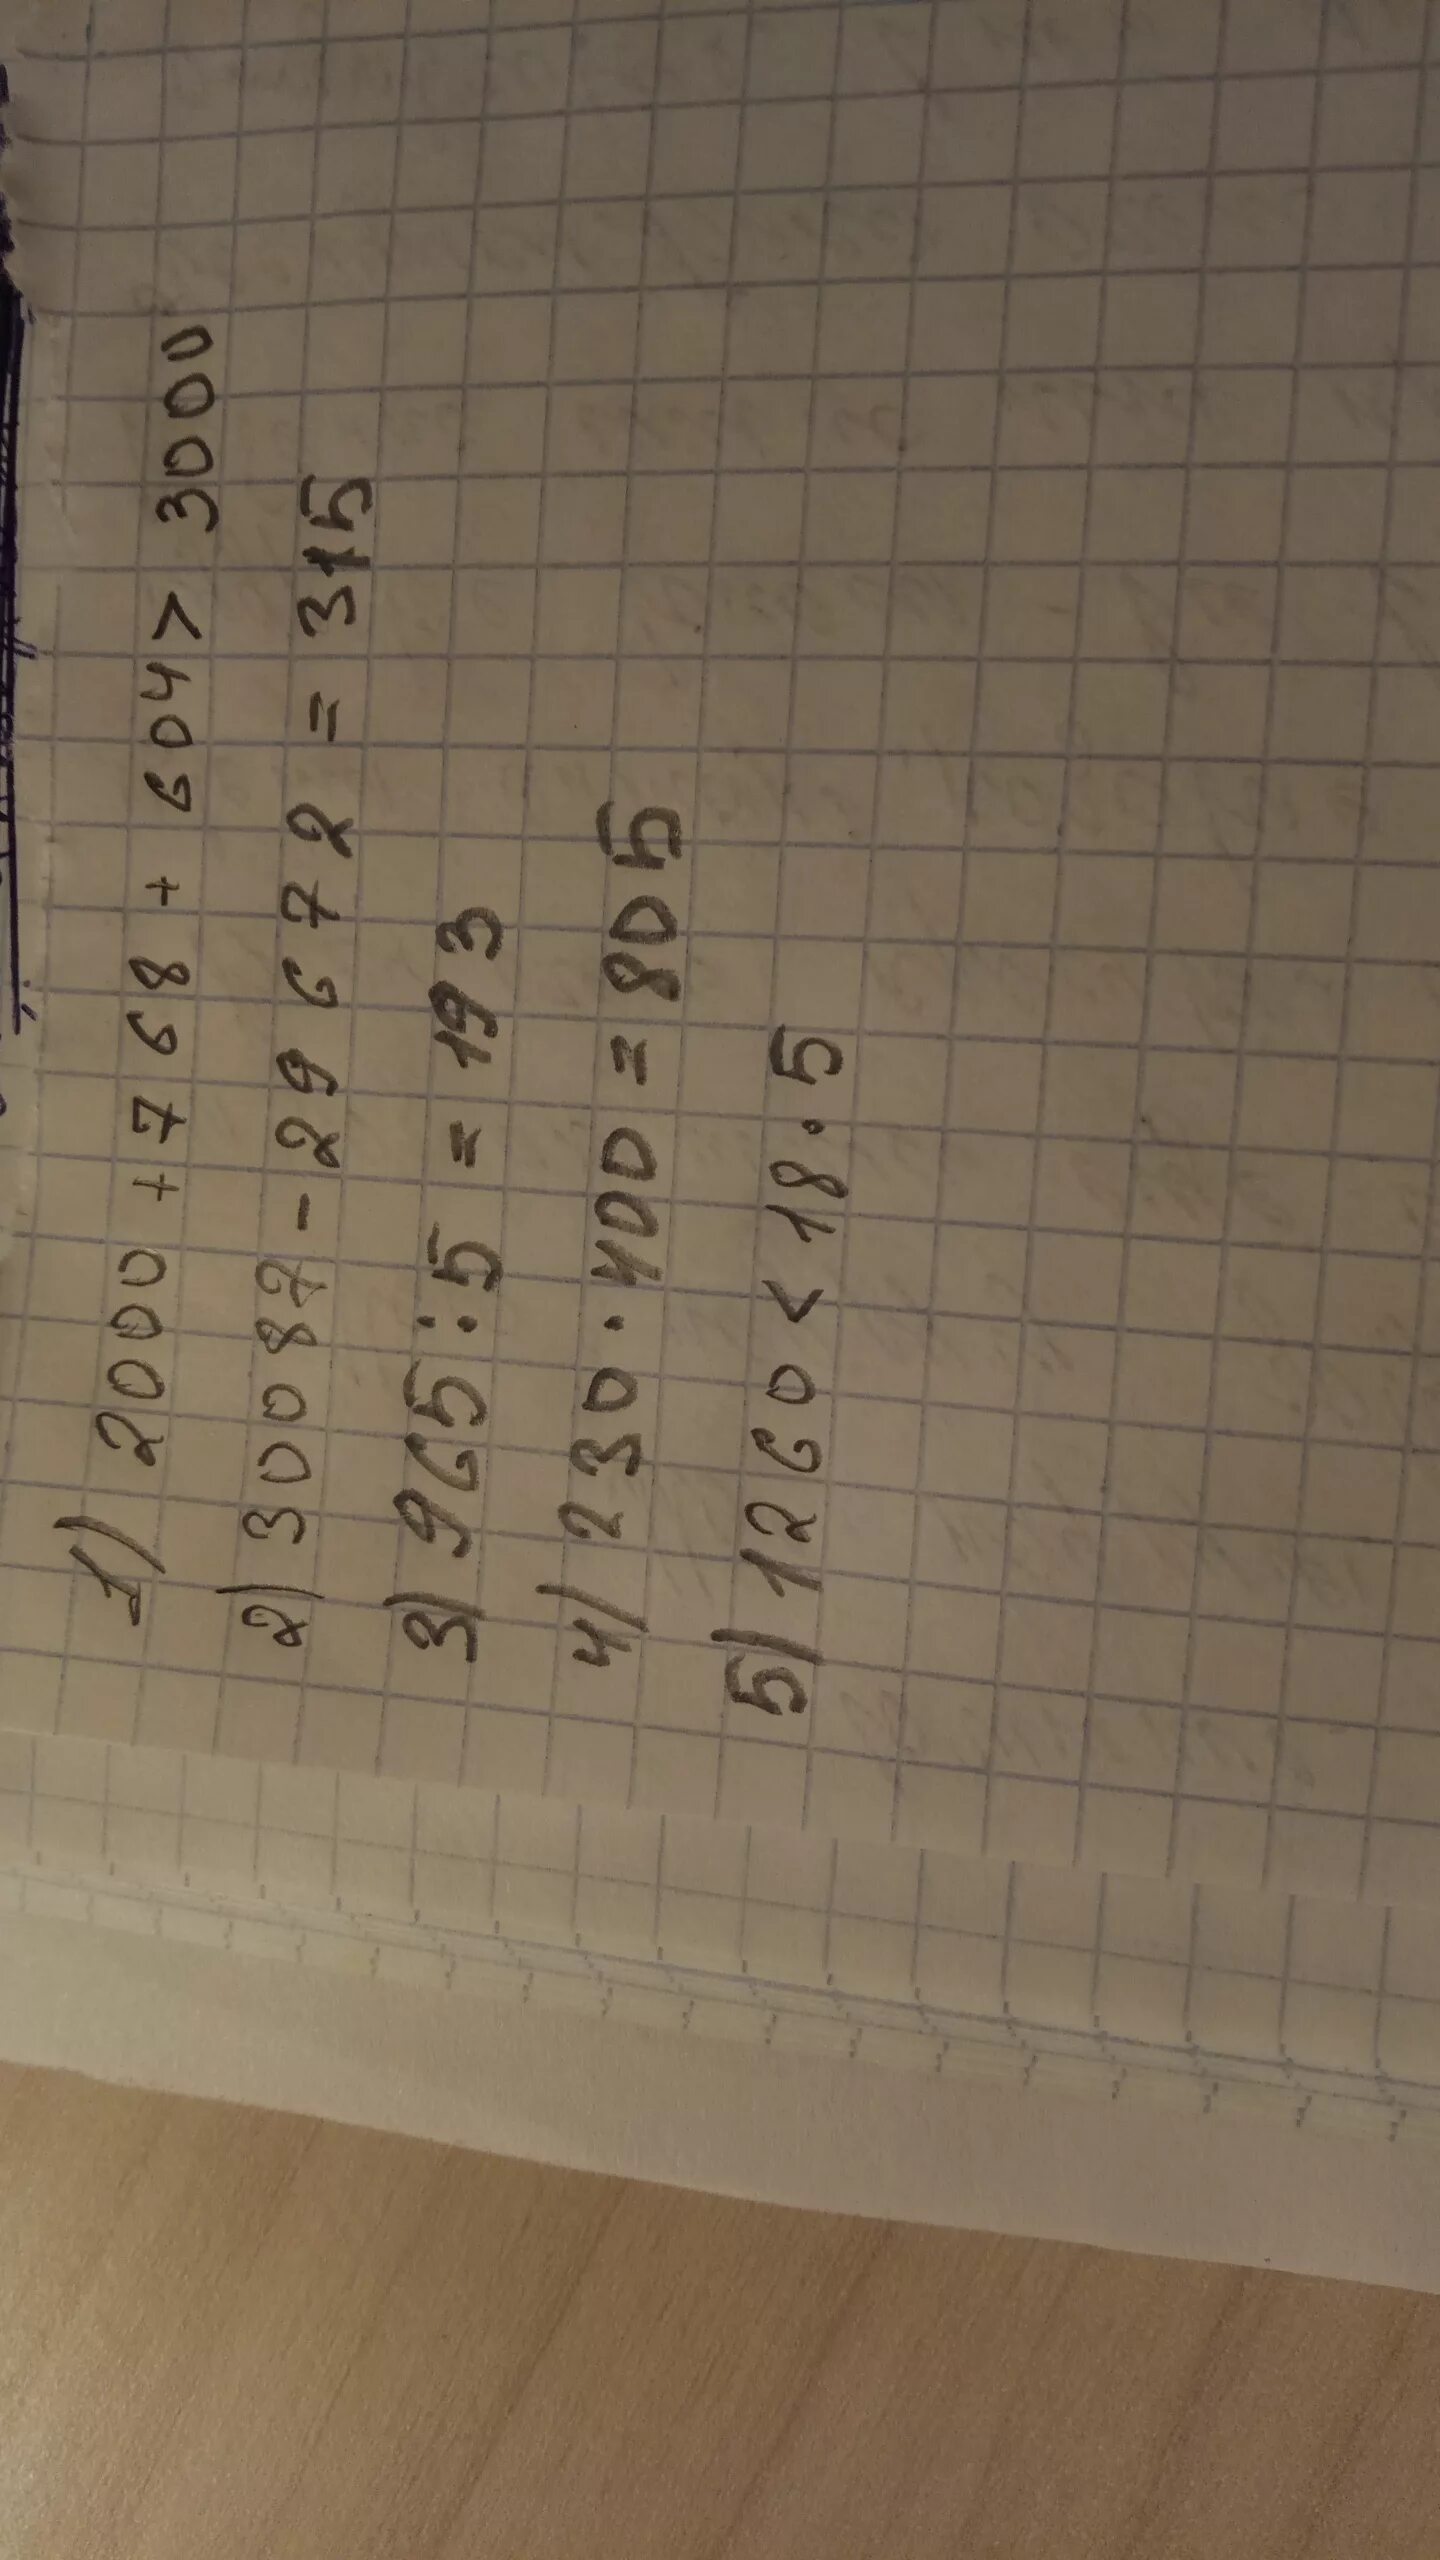 1) 2000 + 768 + 604 > 3000
2) 30087 - 29672 = 315
3) 965 : 5 = 193
4) 230 · 400 = 805
5) 1260 < 18 · 5